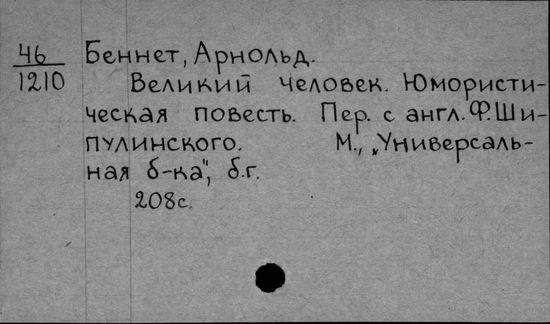 46
1210
Беннет, Арнольд.
Великий человек. Юмористи-
ческая повесть. Пер. с англ. Ф. Ши-
пулинского. М., „Универсаль-
ная б-ка", б.г.
208с.